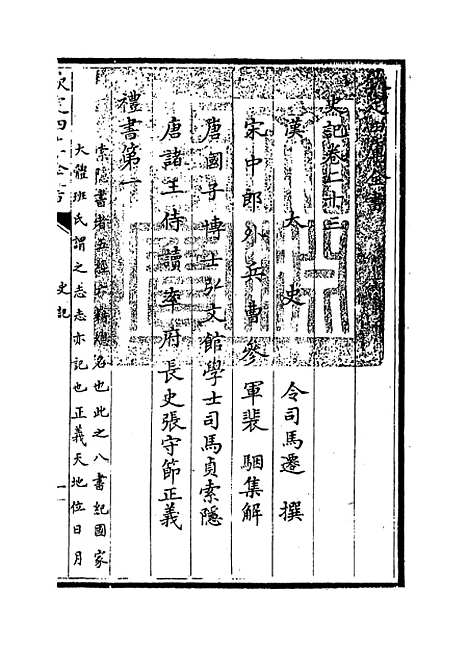 欽定四庫全書
史記卷二十三
漢太史令司馬遷撰
宋中郎外兵曹參軍裴駰集解
唐國子博士弘文館學士司馬貞索隱
唐諸王侍讀率府長史張守節正義
禮書第一
索隱書者五經六籍總名也此之八書紀國家
大體班氏謂之志志亦記也正義天地位日月
欽定四庫全書
史記
一